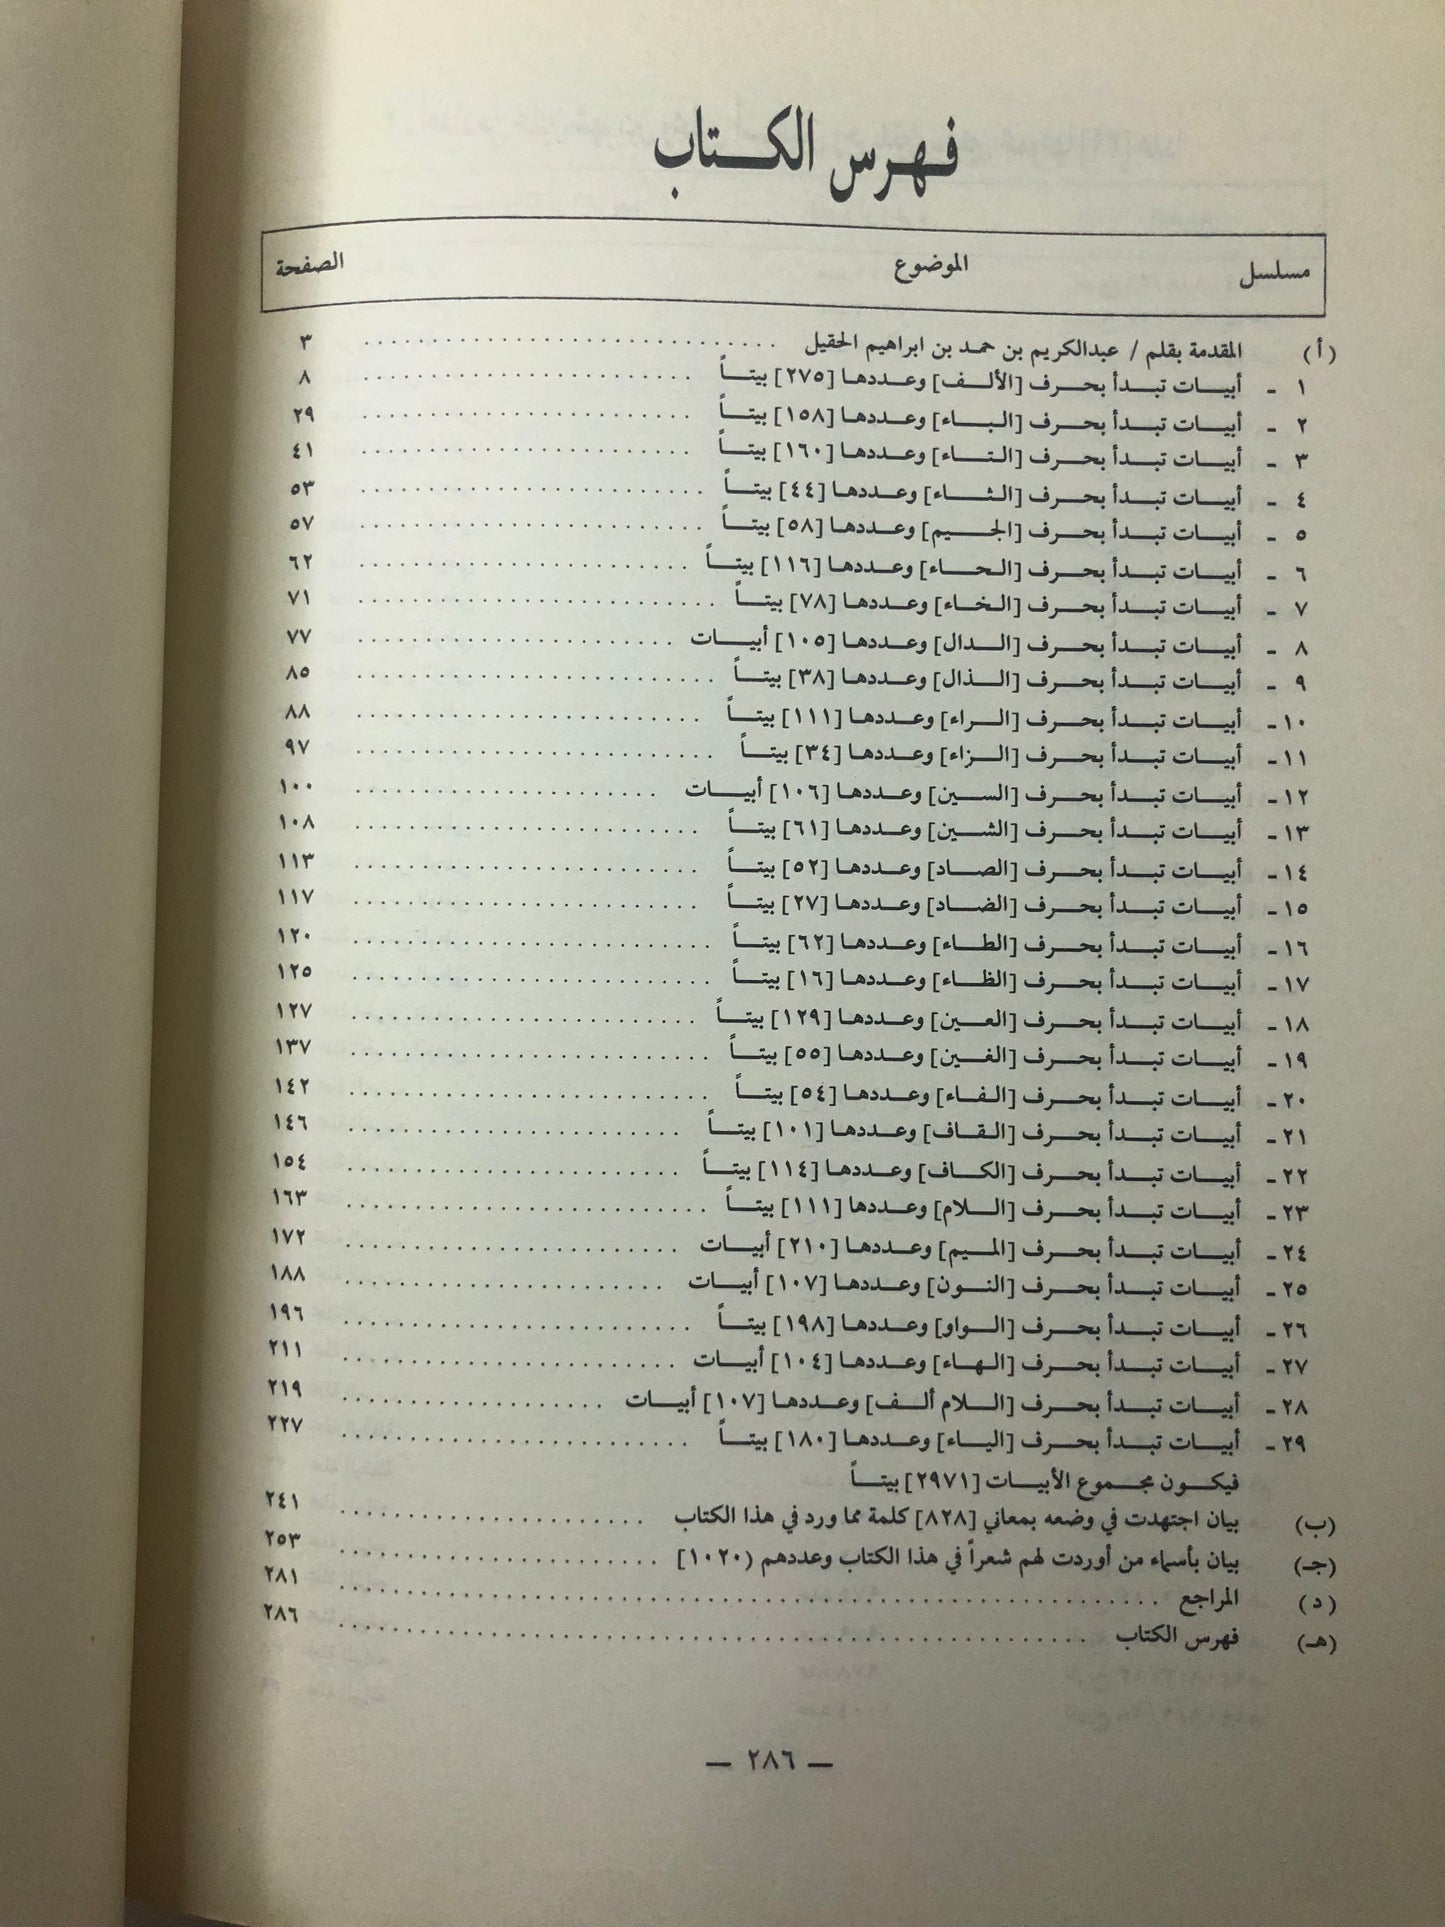 فهرس الكتاب
مسلسل الموضوع الصفحة
(أ) المقدمة بقلم / عبدالكريم بن حمد بن ابراهيم الحقيل ٣
١ - أبيات تبدأ بحرف [الألف] وعددها [٢٧٥] بيتاً ٨
٢ - أبيات تبدأ بحرف [الباء] وعددها [١٥٨] بيتاً ٢٩
٣ - أبيات تبدأ بحرف [التاء] وعددها [١٦٠] بيتاً ٤١
٤ - أبيات تبدأ بحرف [الثاء] وعددها [٤٤] بيتاً ٥٣
٥ - أبيات تبدأ بحرف [الجيم] وعددها [٥٨] بيتاً ٥٧
٦ - أبيات تبدأ بحرف [الحاء] وعددها [١١٦] بيتاً ٦٢
٧ - أبيات تبدأ بحرف [الخاء] وعددها [٧٨] بيتاً ٧١
٨ - أبيات تبدأ بحرف [الدال] وعددها [١٠٥] أبيات ٧٧
٩ - أبيات تبدأ بحرف [الذال] وعددها [٣٨] بيتاً ٨٥
١٠ - أبيات تبدأ بحرف [الراء] وعددها [١١١] بيتاً ٨٨
١١ - أبيات تبدأ بحرف [الزاء] وعددها [٣٤] بيتاً ٩٧
١٢ - أبيات تبدأ بحرف [السين] وعددها [١٠٦] أبيات ١٠٠
١٣ - أبيات تبدأ بحرف [الشين] وعددها [٦١] بيتاً ١٠٨
١٤ - أبيات تبدأ بحرف [الصاد] وعددها [٥٢] بيتاً ١١٣
١٥ - أبيات تبدأ بحرف [الضاد] وعددها [٢٧] بيتاً ١١٧
١٦ - أبيات تبدأ بحرف [الطاء] وعددها [٦٢] بيتاً ١٢٠
١٧ - أبيات تبدأ بحرف [الظاء] وعددها [١٦] بيتاً ١٢٥
١٨ - أبيات تبدأ بحرف [العين] وعددها [١٢٩] بيتاً ١٢٧
١٩ - أبيات تبدأ بحرف [الغين] وعددها [٥٥] بيتاً ١٣٧
٢٠ - أبيات تبدأ بحرف [الفاء] وعددها [٥٤] بيتاً ١٤٢
٢١ - أبيات تبدأ بحرف [القاف] وعددها [١٠١] بيتاً ١٤٦
٢٢ - أبيات تبدأ بحرف [الكاف] وعددها [١١٤] بيتاً ١٥٤
٢٣ - أبيات تبدأ بحرف [اللام] وعددها [١١١] بيتاً ١٦٣
٢٤ - أبيات تبدأ بحرف [الميم] وعددها [٢١٠] أبيات ١٧٢
٢٥ - أبيات تبدأ بحرف [النون] وعددها [١٠٧] أبيات ١٨٨
٢٦ - أبيات تبدأ بحرف [الواو] وعددها [١٩٨] بيتاً ١٩٦
٢٧ - أبيات تبدأ بحرف [الهاء] وعددها [١٠٤] أبيات ٢١١
٢٨ - أبيات تبدأ بحرف [اللام ألف] وعددها [١٠٧] أبيات ٢١٩
٢٩ - أبيات تبدأ بحرف [الياء] وعددها [١٨٠] بيتاً ٢٢٧
فيكون مجموع الأبيات [٢٩٧١] بيتاً
(ب) بيان اجتهدت في وضعه بمعاني [٨٢٨] كلمة مما ورد في هذا الكتاب ٢٤١
(جـ) بيان بأسماء من أوردت لهم شعراً في هذا الكتاب وعددهم (١٠٢٠] ٢٥٣
(د) المراجع ٢٨١
(هـ) فهرس الكتاب ٢٨٦
— ٢٨٦ —